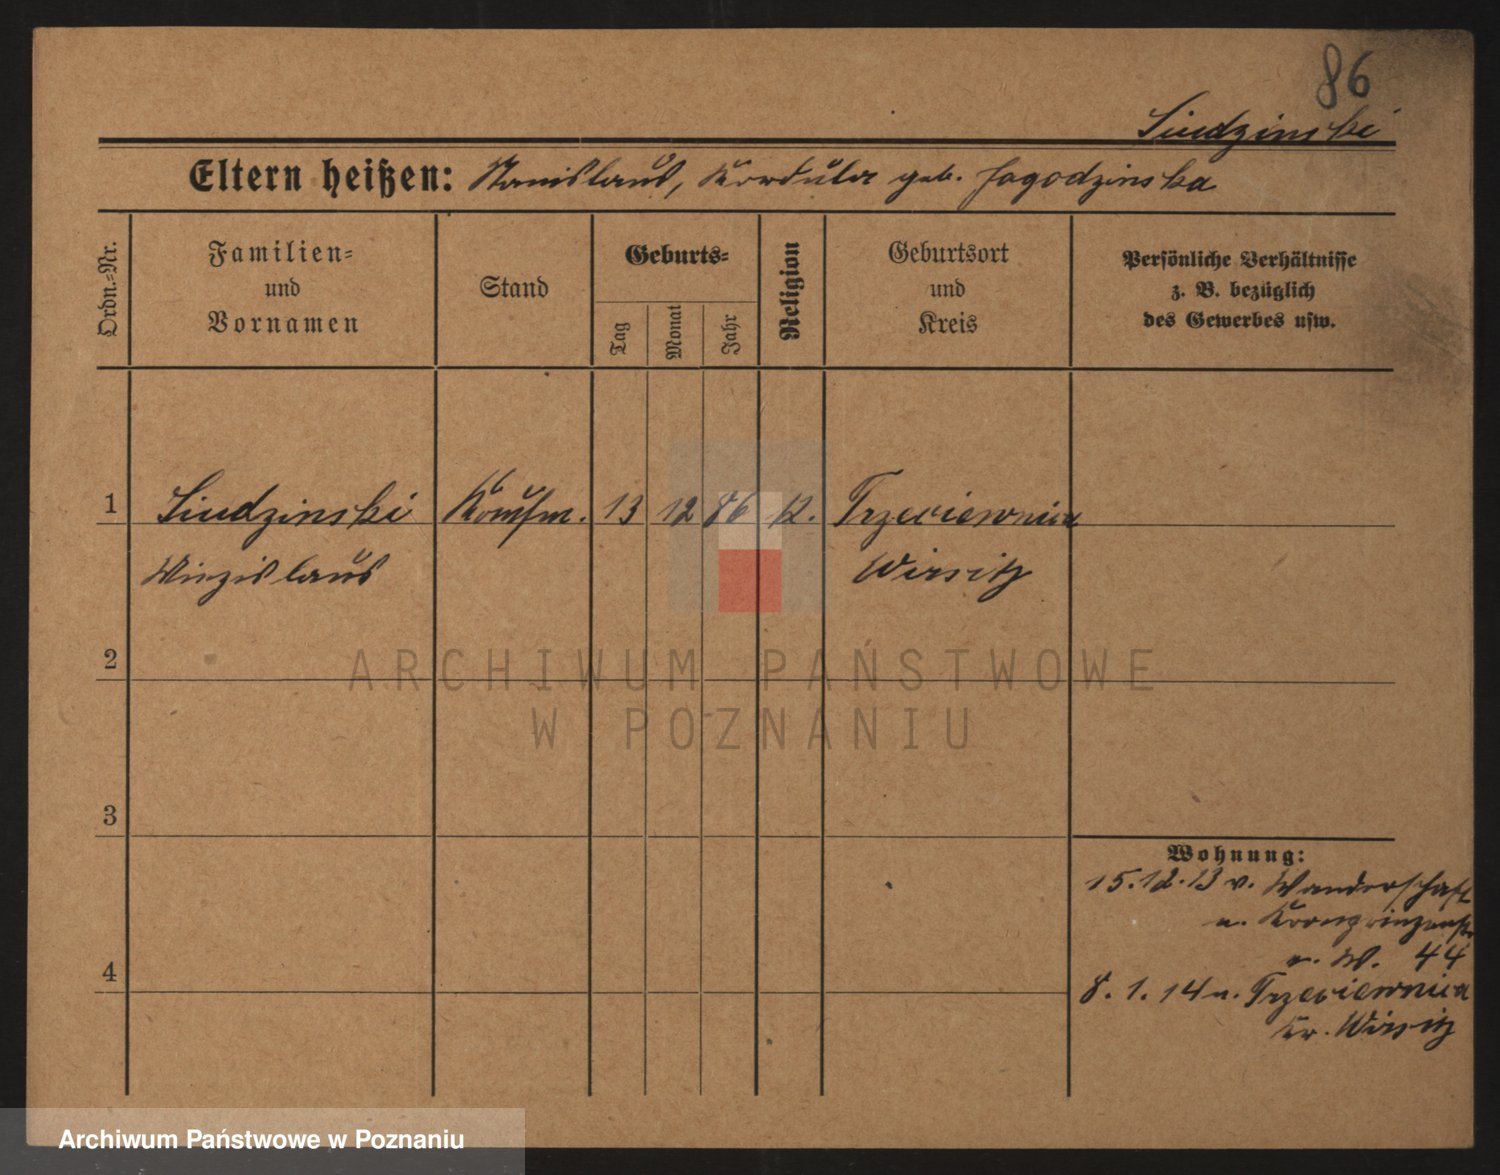 86
Siudzinski
Eltern heißen: Stanislaus, Kordula geb. Jagodzinska
Ordn.-Nr.
Familien-
und
Vornamen
Stand
Geburts-
Tag
Monat
Jahr
Religion
Geburtsort
und
Kreis
Persönliche Verhältnisse
z. B. bezüglich
des Gewerbes usw.
1 Siudzinski Kaufm. 13 12 86 k. Trzeciewnica
Winzislaus Wirsitz
2
3
4
Wohnung:
15.12.13 v. Wanderschaft
n. Kronprinzenstr
44
8. 1. 14 n. Trzeciewnica
Kr. Wirsitz
ARCHIWUM PAŃSTWOWE
W POZNANIU
Archiwum Państwowe w Poznaniu